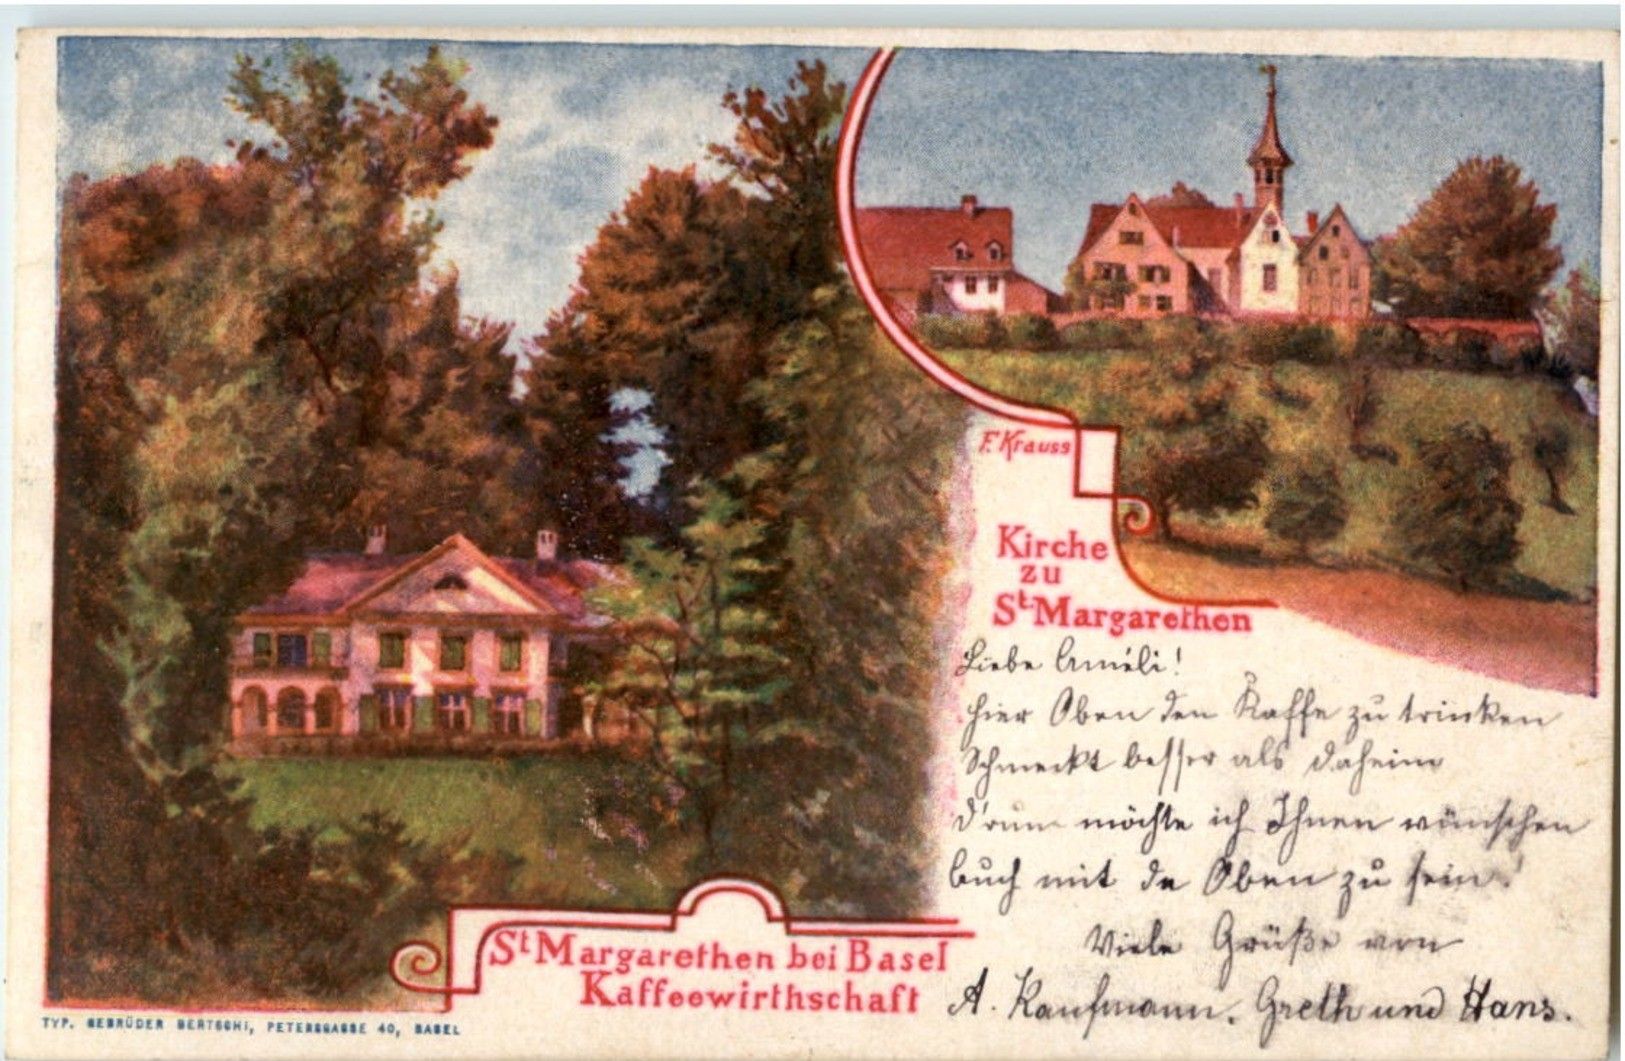 F. Krauss
Kirche
zu
St. Margarethen
Liebe Améli!
hier Oben den Kaffe zu trinken
Schmeckt besser als daheim
D'rum möchte ich Ihnen wünschen
Auch mit da Oben zu sein!
Viele Grüße von
A. Kaufmann, Greth und Hans.
St Margarethen bei Basel
Kaffeewirthschaft
TYP. GEBRÜDER BERTSCHI, PETERSGASSE 40, BASEL